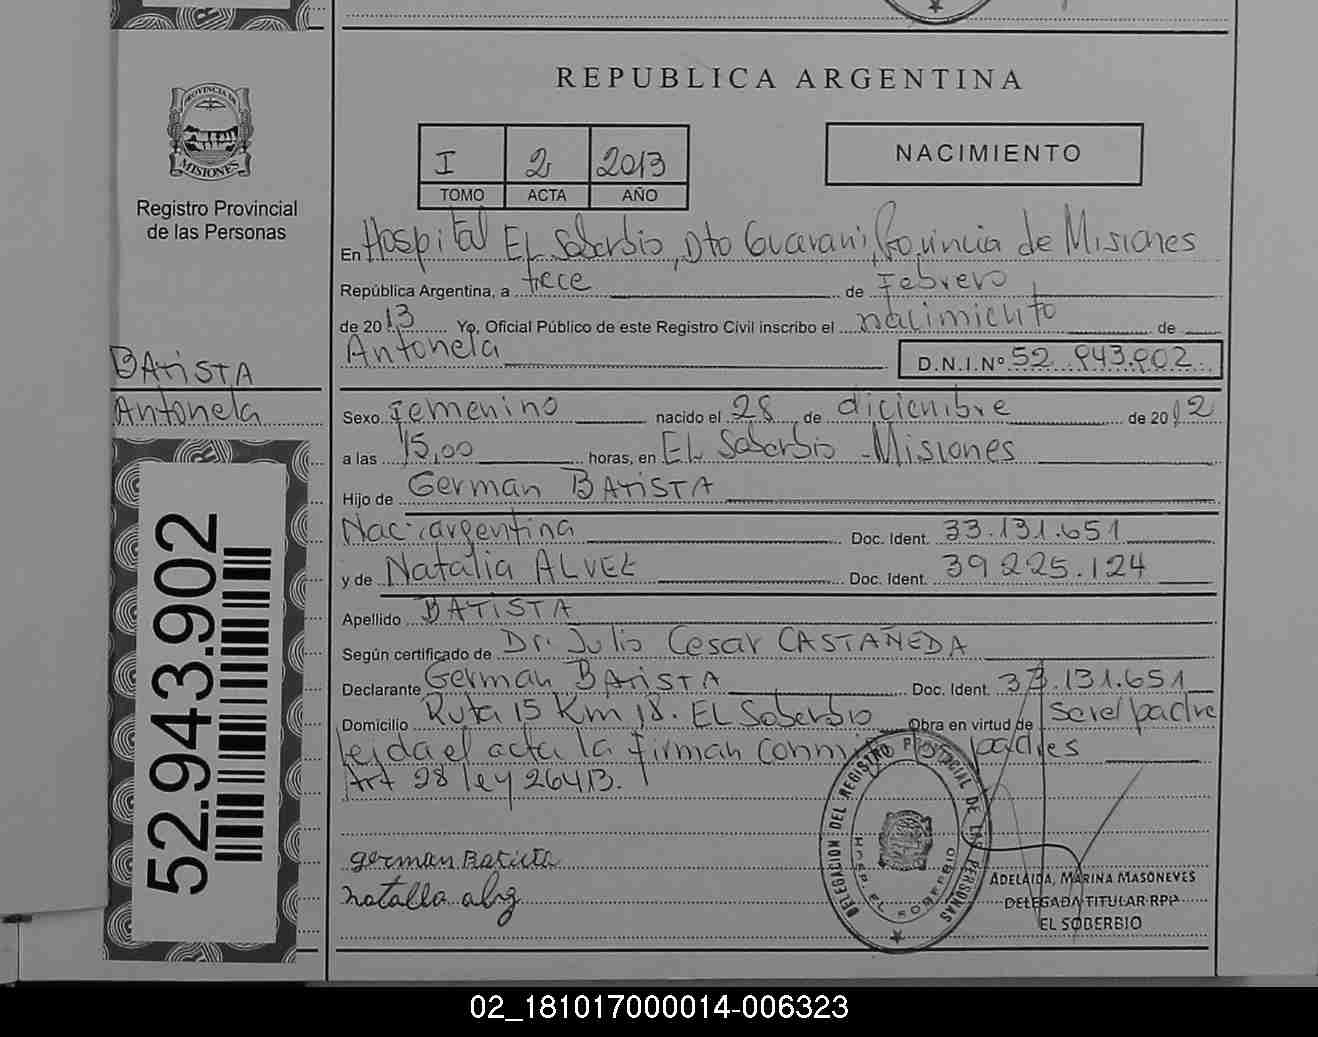 REPUBLICA ARGENTINA
PROVINCIA DE MISIONES
Registro Provincial
de las Personas
I 2 2013
TOMO ACTA AÑO
NACIMIENTO
En Hospital EL Soberbio, Dto Guarani, Provincia de Misiones
República Argentina, a trece de Febrero
de 2013 Yo, Oficial Público de este Registro Civil inscribo el nacimiento de
Antonela D.N.I.Nº 52.943.902
BATISTA
Antonela
Sexo femenino nacido el 28 de diciembre de 2012
a las 15,00 horas, en EL Soberbio - Misiones
Hijo de German BATISTA
Nac: argentina Doc. Ident. 33.131.651
y de Natalia ALVEZ Doc. Ident. 39 225.124
Apellido BATISTA
Según certificado de Dr. Julio Cesar CASTAÑEDA
Declarante German BATISTA Doc. Ident. 33.131.651
Domicilio Ruta 15 Km 18. EL Soberbio Obra en virtud de ser el padre
leida el acta la firman conmigo padres
Art 28 ley 26413.
german Batista
natalia
52.943.902
DELEGACION DEL REGISTRO PROVINCIAL DE LAS PERSONAS
HOSP. EL SOBERBIO
ADELAIDA, MARINA MASONEVES
DELEGADA TITULAR RPP
EL SOBERBIO
02_181017000014-006323